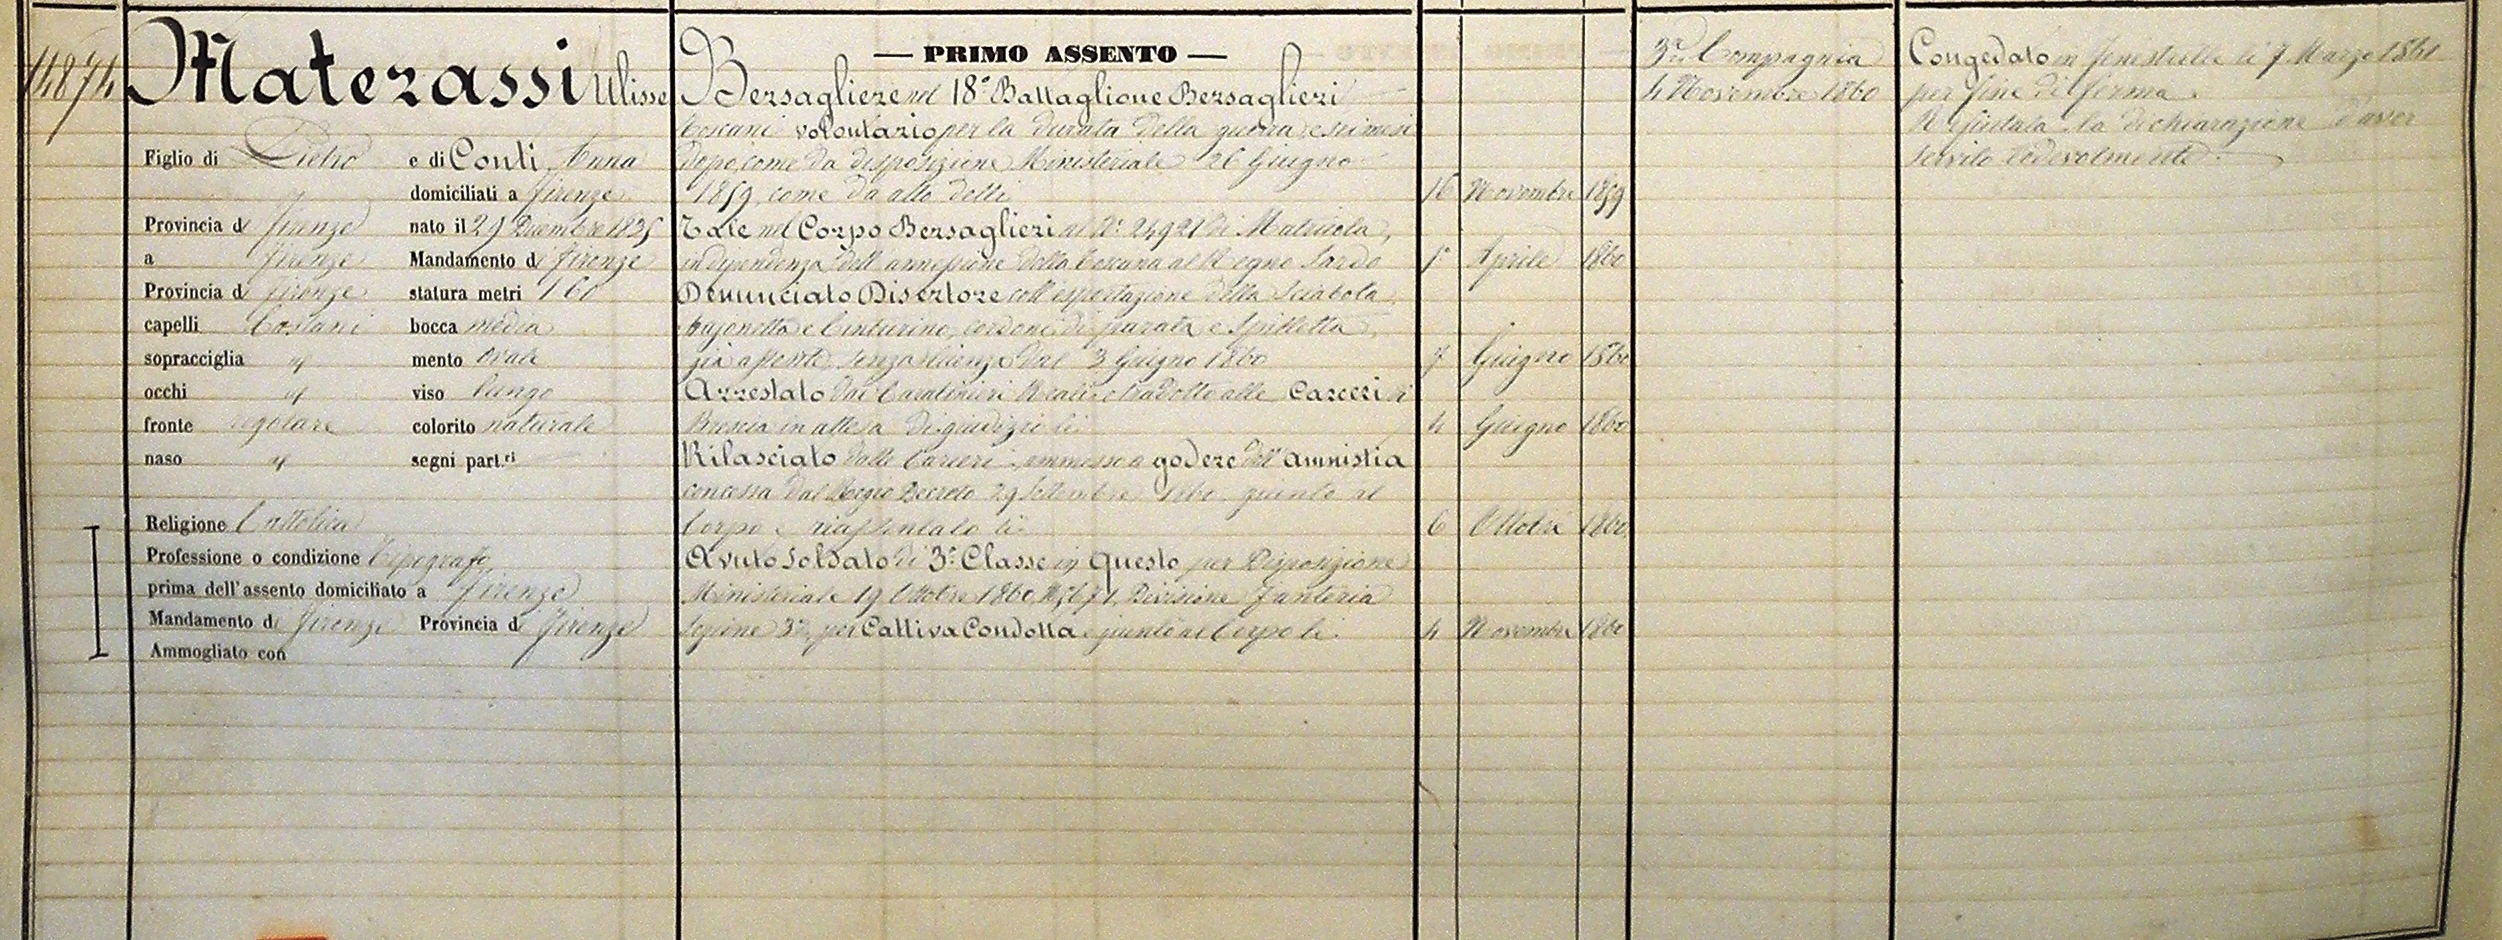 14874
Materassi Ulisse
Figlio di Pietro e di Conti Anna
domiciliati a Firenze
Provincia di Firenze nato il 29 Dicembre 1835
a Firenze Mandamento di Firenze
Provincia di Firenze statura metri 1 60
capelli Castani bocca media
sopracciglia id mento ovale
occhi id viso lungo
fronte regolare colorito naturale
naso id segni part.ri
Religione Cattolica
Professione o condizione Tipografo
prima dell'assento domiciliato a Firenze
Mandamento di Firenze Provincia di Firenze
Ammogliato con
— PRIMO ASSENTO —
Bersagliere nel 18° Battaglione Bersaglieri
toscani volontario per la durata della guerra e sei mesi
dopo, come da disposizione Ministeriale 26 Giugno
1859, come da atto delli 16 Novembre 1859
Tale nel Corpo Bersaglieri al N° 24921 di Matricola,
in dipendenza dell'annessione della Toscana al Regno Sardo 1° Aprile 1860
Denunciato Disertore coll'esportazione della Sciabola
bajonetta e Centurino, cordoni di parata e Spilletta,
già assente senza licenza dal 3 Giugno 1860 7 Giugno 1860
Arrestato dai Carabinieri Reali e tradotto alle Carceri di
Brescia in attesa di giudizio li 4 Giugno 1860
Rilasciato dalle Carceri, ammesso a godere dell'amnistia
concessa dal Regio Decreto 29 Settembre 1860 giunto al
Corpo e riassentato li 6 Ottobre 1860
Avuto Soldato di 3a Classe in questo per Disposizione
Ministeriale 19 Ottobre 1860, N. 5671, Divisione Fanteria
Sezione 3a, per Cattiva Condotta e giunto al Corpo li 4 Novembre 1860
3a Compagnia
4 Novembre 1860
Congedato in Fenestrelle li 7 Marzo 1861
per fine di ferma.
Rifiutata la dichiarazione d'aver
servito lodevolmente.